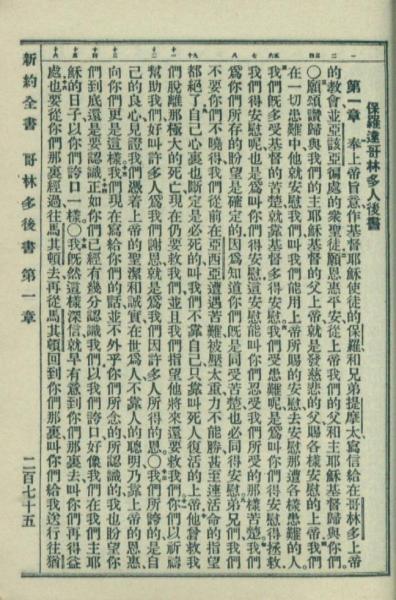 保羅達哥林多人後書
第一章 奉上帝旨意作基督耶穌使徒的保羅和兄弟提摩太寫信給在哥林多上帝
的教會並亞該亞徧處的衆聖徒願恩惠平安從上帝我們的父和主耶穌基督歸與你們。
〇願頌讚歸與我們的主耶穌基督的父上帝就是發慈悲的父賜各樣安慰的上帝我們
在一切患難中他就安慰我們叫我們能用上帝所賜的安慰去安慰那遭各樣患難的人。
我們旣多受基督的苦楚就靠基督多得安慰我們受患難呢是爲叫你們得安慰得拯救
我們得安慰呢也是爲叫你們得安慰這安慰能叫你們忍受我們所受的那樣苦楚我們
爲你們所存的盼望是確定的因爲知道你們旣是同受苦楚也必同得安慰弟兄們我們
不要你們不曉得我們從前在亞西亞遭遇苦難被壓太重力不能勝甚至連活命的指望
都絕了自己心裏也斷定是必死的叫我們不靠自己只靠叫死人復活的上帝他曾救我
們脫離那極大的死亡現在仍要救我們並且我們指望他將來還要救我們你們以祈禱
幫助我們好叫許多人爲我們謝恩就是爲我們因許多人所得的恩〇我們所誇的是自
己的良心見證我們憑着上帝的聖潔和誠實在世爲人不靠人的聰明乃靠上帝的恩惠、
向你們更是這樣我們現在寫給你們的話並不外乎你們所念的所認識的我也盼望你
們到底還是要認識正如你們已經有幾分認識我們以我們誇口好像我們在我們主耶
穌的日子以你們誇口一樣〇我旣然這樣深信就早有意到你們那裏去叫你們再得益
處也要從你們那裏經過往馬其頓去再從馬其頓回到你們那裏叫你們給我送行往猶
新約全書 哥林多後書 第一章 二百七十五